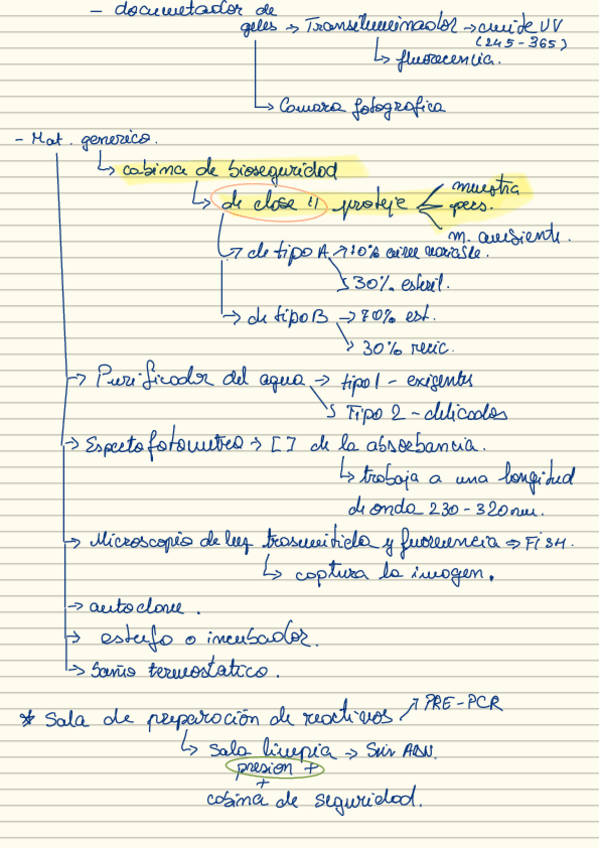 - documetador de
geles → Transiluminador → cuide UV
(245-365)
↳ fluorecencia.
↳ Camara fotografica
- Mat. generico.
↳ cabina de bioseguridad
↳ de clase II proteje muestra
pers.
m. ambiente.
→ de tipo A → 70% aire
30% esteril.
→ de tipo B → 70% est.
30% recic.
→ Purificador del agua → tipo 1 - exigentes
Tipo 2 - delicados
→ Espectofotometro → [ ] de la absorbancia.
↳ trabaja a una longitud
de onda 230-320 nm.
→ Microscopio de luz trasmitida y fluorencia ⇒ FISH.
↳ captura la imagen.
→ autoclave.
→ estufa o incubador.
→ baño termostatico.
* Sala de preparación de reactivos ↗ PRE-PCR
↳ sala limpia → Sin ADN.
presion +
+
cabina de seguridad.